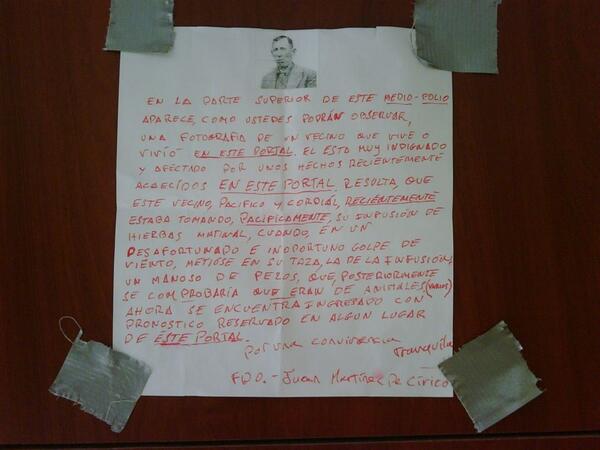 EN LA PARTE SUPERIOR DE ESTE MEDIO-FOLIO
APARECE, COMO USTEDES PODRÁN OBSERVAR,
UNA FOTOGRAFIA DE UN VECINO QUE VIVE O
VIVIÓ EN ESTE PORTAL. EL ESTA MUY INDIGNADO
Y AFECTADO POR UNOS HECHOS RECIENTEMENTE
ACAECIDOS EN ESTE PORTAL. RESULTA, QUE
ESTE VECINO, PACIFICO Y CORDIAL, RECIENTEMENTE
ESTABA TOMANDO, PACIFICAMENTE, SU INFUSIÓN DE
HIERBAS MATINAL, CUANDO, EN UN
DESAFORTUNADO E INOPORTUNO GOLPE DE
VIENTO, METIÓSE EN SU TAZA, LA DE LA INFUSIÓN,
UN MANOJO DE PELOS, QUE, POSTERIORMENTE
SE COMPROBARÍA QUE ERAN DE ANIMALES (VARIOS)
AHORA SE ENCUENTRA INGRESADO CON
PRONOSTICO RESERVADO EN ALGUN LUGAR
DE ESTE PORTAL.
Por una convivencia
Tranquila
FDO.- Juan Martínez De Círico